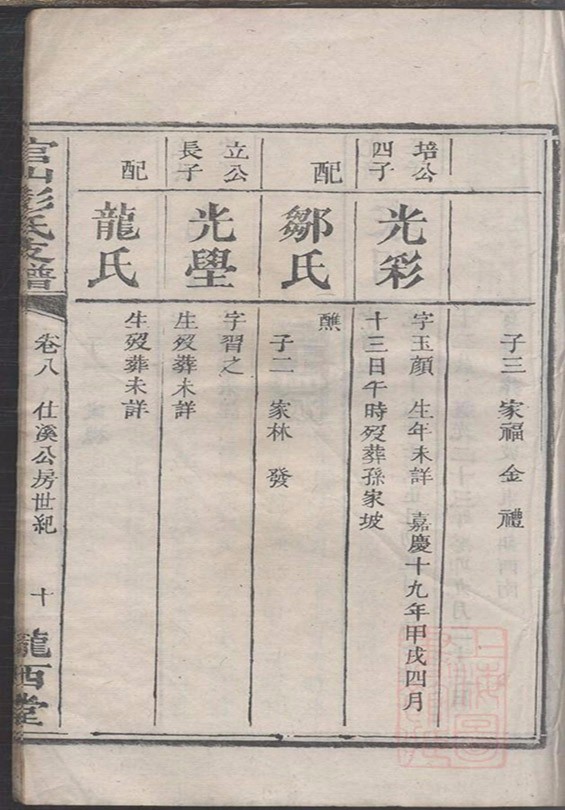 子三 家福 金 禮
培公
四子
光彩
字玉顏 生年未詳 嘉慶十九年甲戌四月
十三日午時歿葬孫家坡
配
鄒氏
醮
子二 家林 發
立公
長子
光壆
字習之
生歿葬未詳
配
龍氏
生歿葬未詳
官山彭氏支譜
卷八 仕溪公房世紀 十
隴西堂